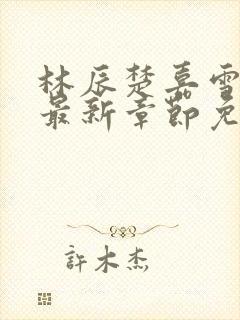 林辰楚嘉雪
最新章節免
許木杰